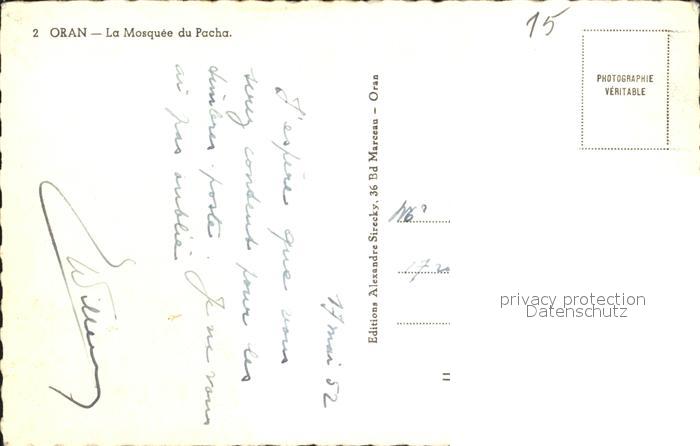 2 ORAN — La Mosquée du Pacha.
15
PHOTOGRAPHIE
VÉRITABLE
17 mai 52
J'espère que vous
serez content pour les
timbres-poste. Je ne vous
ai pas oublié
Editions Alexandre Sirecky, 36 Bd Marceau - Oran
privacy protection
Datenschutz